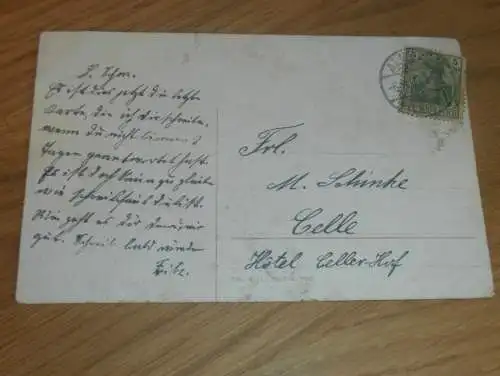 L. Schw.
Es ist dies jetzt die letzte
Karte, die ich dir schreibe,
wenn du nicht binnen 3
Tagen geantwortet hast.
Es ist doch kaum zu glauben
wie schreibfaul du bist.
Wie geht es dir
gut. Schreib bald wieder
Fritz.
Frl.
M. Schinke
Celle
Hôtel Celler-Hof
5
5